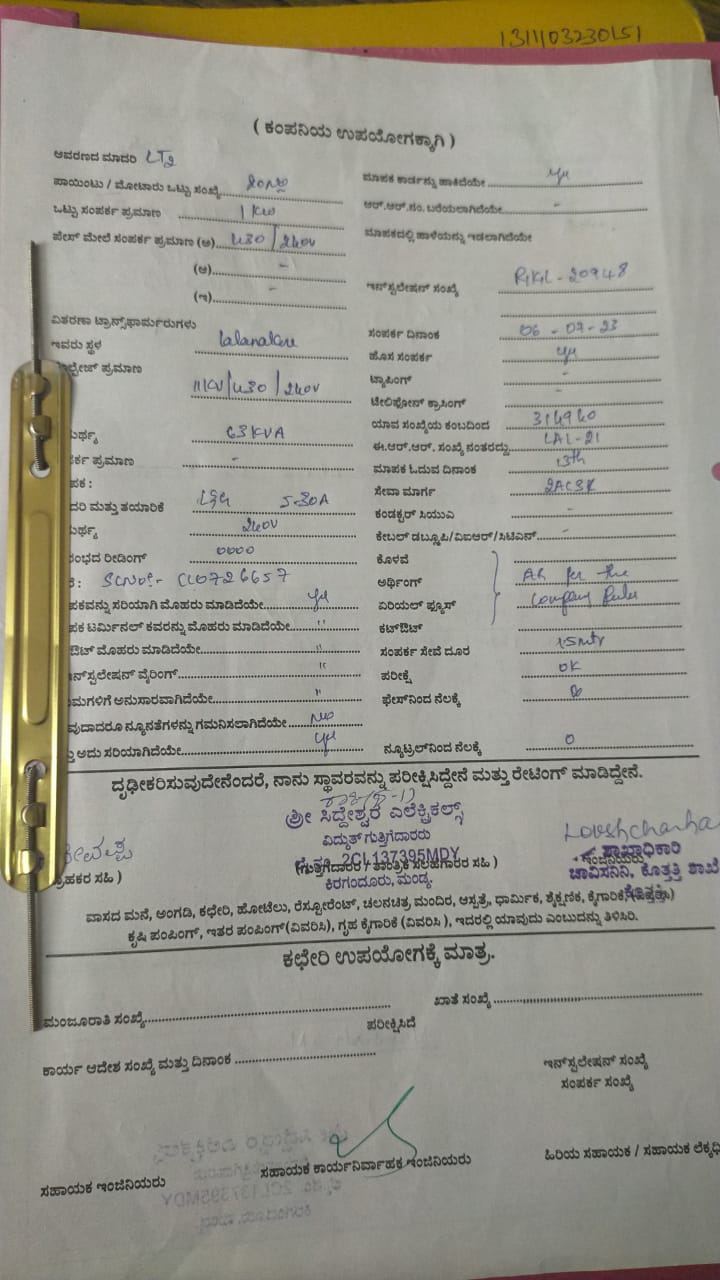 13110323015151
( ಕಂಪನಿಯ ಉಪಯೋಗಕ್ಕಾಗಿ )
ಆವರಣದ ಮಾದರಿ LT2
ಪಾಯಿಂಟು / ಮೋಟಾರು ಒಟ್ಟು ಸಂಖ್ಯೆ
ಮಾಪಕ ಕಾರ್ಡನ್ನು ಹಾಕಿದೆಯೇ Yes
ಒಟ್ಟು ಸಂಪರ್ಕ ಪ್ರಮಾಣ 1 KW
ಆರ್.ಆರ್.ನಂ. ಬರೆಯಲಾಗಿದೆಯೇ -
ಫೇಸ್ ಮೇಲೆ ಸಂಪರ್ಕ ಪ್ರಮಾಣ (ಅ) 430/240V
ಮಾಪಕದಲ್ಲಿ ಹಾಳೆಯನ್ನು ಇಡಲಾಗಿದೆಯೇ
(ಆ) -
(ಇ) -
ಇನ್‌ಸ್ಟಲೇಷನ್ ಸಂಖ್ಯೆ 20948
ವಿತರಣಾ ಟ್ರಾನ್ಸ್‌ಫಾರ್ಮರುಗಳು
ಸಂಪರ್ಕ ದಿನಾಂಕ 06-07-23
ಇವರು ಸ್ಥಳ lalanakere
ಹೊಸ ಸಂಪರ್ಕ Yes
ಲ್ಟೇಜ್ ಪ್ರಮಾಣ 11KV/430/240V
ಟ್ಯಾಪಿಂಗ್ -
ಟೆಲಿಫೋನ್ ಕ್ರಾಸಿಂಗ್ -
ಯಾವ ಸಂಖ್ಯೆಯ ಕಂಬದಿಂದ 314940
ಮರ್ಥ್ಯ 63KVA
ಈ.ಆರ್.ಆರ್. ಸಂಖ್ಯೆ ನಂತರದ್ದು LAL-21
ರ್ಕ ಪ್ರಮಾಣ -
ಮಾಪಕ ಓದುವ ದಿನಾಂಕ 13th
ಪಕ :
ಸೇವಾ ಮಾರ್ಗ 2ACSR
ದರಿ ಮತ್ತು ತಯಾರಿಕೆ L&G 5-30A
ಕಂಡಕ್ಟರ್ ಸಿಯುಎ -
ಮರ್ಥ್ಯ 240V
ಕೇಬಲ್ ಡಬ್ಲ್ಯೂಪಿ/ವಿಐಆರ್/ಸಿಟಿಎಸ್ -
ರಂಭದ ರೀಡಿಂಗ್ 0000
ಕೊಳವೆ
SCNO:- CL0726657
ಅರ್ಥಿಂಗ್ As per the
ಪಕವನ್ನು ಸರಿಯಾಗಿ ಮೊಹರು ಮಾಡಿದೆಯೇ Yes
ಏರಿಯಲ್ ಫ್ಯೂಸ್ Company Rules
ಪಕ ಟರ್ಮಿನಲ್ ಕವರನ್ನು ಮೊಹರು ಮಾಡಿದೆಯೇ "
ಕಟ್‌ಔಟ್
ಔಟ್ ಮೊಹರು ಮಾಡಿದೆಯೇ "
ಸಂಪರ್ಕ ಸೇವೆ ದೂರ 15mtr
ನ್‌ಸ್ಟಲೇಷನ್ ವೈರಿಂಗ್ "
ಪರೀಕ್ಷೆ OK
ಮಗಳಿಗೆ ಅನುಸಾರವಾಗಿದೆಯೇ "
ಫೇಸ್‌ನಿಂದ ನೆಲಕ್ಕೆ
ವುದಾದರೂ ನ್ಯೂನತೆಗಳನ್ನು ಗಮನಿಸಲಾಗಿದೆಯೇ No
ತ್ತು ಅದು ಸರಿಯಾಗಿದೆಯೇ Yes
ನ್ಯೂಟ್ರಲ್‌ನಿಂದ ನೆಲಕ್ಕೆ 0
ದೃಢೀಕರಿಸುವುದೇನೆಂದರೆ, ನಾನು ಸ್ಥಾವರವನ್ನು ಪರೀಕ್ಷಿಸಿದ್ದೇನೆ ಮತ್ತು ರೇಟಿಂಗ್ ಮಾಡಿದ್ದೇನೆ.
ಶ್ರೀ ಸಿದ್ದೇಶ್ವರ ಎಲೆಕ್ಟ್ರಿಕಲ್ಸ್
ವಿದ್ಯುತ್ ಗುತ್ತಿಗೆದಾರರು
2CL137395MDY
ಶಾಖಾಧಿಕಾರಿ
ಇಂಜಿನಿಯರು
ಗ್ರಾಹಕರ ಸಹಿ )
(ಗುತ್ತಿಗೆದಾರರ / ತಾಂತ್ರಿಕ ಸಲಹಾಗಾರರ ಸಹಿ )
ಚಾವಿಸನಿನಿ, ಕೊತ್ತತ್ತಿ ಶಾಖೆ
ಕಿರಗಂದೂರು, ಮಂಡ್ಯ.
ವಾಸದ ಮನೆ, ಅಂಗಡಿ, ಕಛೇರಿ, ಹೋಟೆಲು, ರೆಸ್ಟೋರೆಂಟ್, ಚಲನಚಿತ್ರ ಮಂದಿರ, ಆಸ್ಪತ್ರೆ, ಧಾರ್ಮಿಕ, ಶೈಕ್ಷಣಿಕ, ಕೈಗಾರಿಕೆ
ಕೃಷಿ ಪಂಪಿಂಗ್, ಇತರ ಪಂಪಿಂಗ್(ವಿವರಿಸಿ), ಗೃಹ ಕೈಗಾರಿಕೆ (ವಿವರಿಸಿ ), ಇದರಲ್ಲಿ ಯಾವುದು ಎಂಬುದನ್ನು ತಿಳಿಸಿರಿ.
ಕಛೇರಿ ಉಪಯೋಗಕ್ಕೆ ಮಾತ್ರ.
ಮಂಜೂರಾತಿ ಸಂಖ್ಯೆ
ಖಾತೆ ಸಂಖ್ಯೆ
ಪರೀಕ್ಷಿಸಿದೆ
ಕಾರ್ಯ ಆದೇಶ ಸಂಖ್ಯೆ ಮತ್ತು ದಿನಾಂಕ
ಇನ್‌ಸ್ಟಲೇಷನ್ ಸಂಖ್ಯೆ
ಸಂಪರ್ಕ ಸಂಖ್ಯೆ
ಸಹಾಯಕ ಇಂಜಿನಿಯರು
ಸಹಾಯಕ ಕಾರ್ಯನಿರ್ವಾಹಕ ಇಂಜಿನಿಯರು
ಹಿರಿಯ ಸಹಾಯಕ / ಸಹಾಯಕ ಲೆಕ್ಕಧಿ